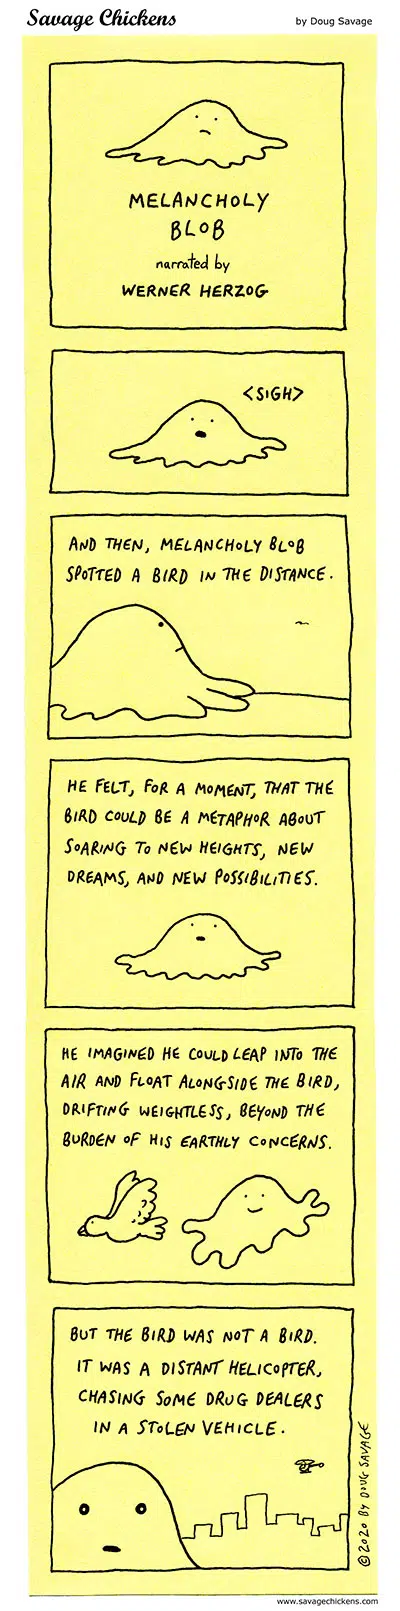 Savage Chickens
by Doug Savage
MELANCHOLY
BLOB
narrated by
WERNER HERZOG
<SIGH>
AND THEN, MELANCHOLY BLOB
SPOTTED A BIRD IN THE DISTANCE.
HE FELT, FOR A MOMENT, THAT THE
BIRD COULD BE A METAPHOR ABOUT
SOARING TO NEW HEIGHTS, NEW
DREAMS, AND NEW POSSIBILITIES.
HE IMAGINED HE COULD LEAP INTO THE
AIR AND FLOAT ALONGSIDE THE BIRD,
DRIFTING WEIGHTLESS, BEYOND THE
BURDEN OF HIS EARTHLY CONCERNS.
BUT THE BIRD WAS NOT A BIRD.
IT WAS A DISTANT HELICOPTER,
CHASING SOME DRUG DEALERS
IN A STOLEN VEHICLE.
©2020 BY DOUG SAVAGE
www.savagechickens.com